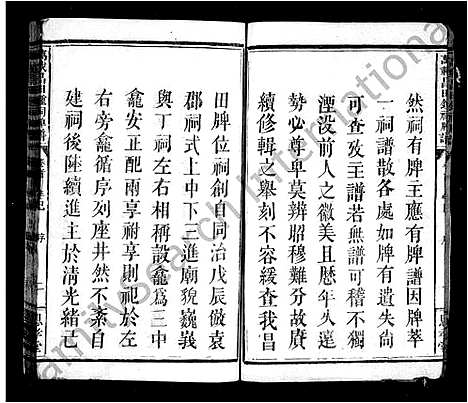 然祠有牌主應有牌譜因牌萃
一祠譜散各處如牌有遺失尙
可查攷主譜若無譜可稽不獨
湮没前人之徽美且歷年久遠
勢必尊卑莫辨昭穆難分故賡
續修輯之舉刻不容緩我昌
田牌位祠創自同治戊辰倣袁
郡祠式上中下三進廟貌巍峩
與丁祠左右相稱設龕爲三中
龕安正配兩享祔享則祀於左
右旁龕循序列座井然不紊自
建祠後陸續進主於清光緒己
amilySearch International